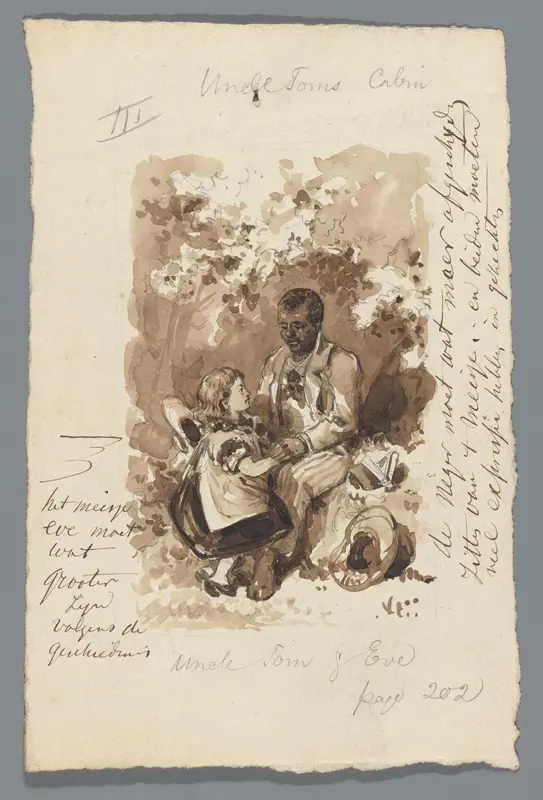 Uncle Toms Cabin
III
de Neger moet wat meer afgescheijd
zitten van 't meisje: en beiden moeten
veel expressie hebben in gezichten
het meisje
eve moet
wat
grooter
zijn
volgens de
geschiedenis
Uncle Tom & Eve
page 202